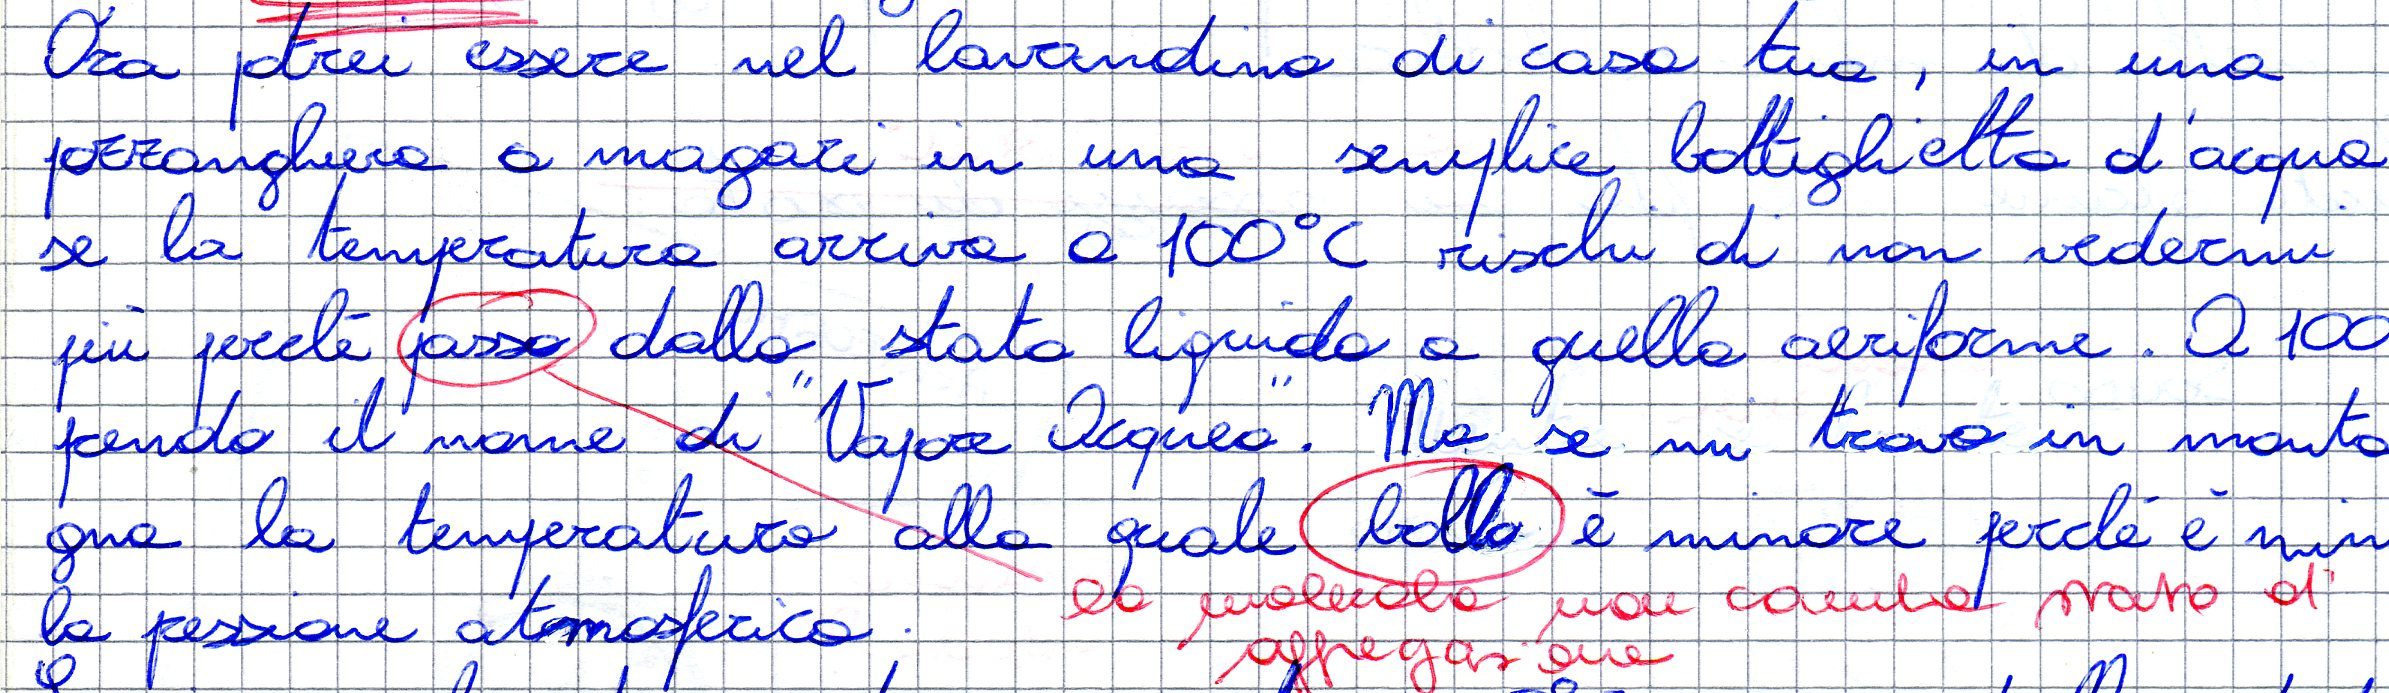 Ora ptrei essere nel lavandino di casa tua, in una
pozzanghera o magari in una semplice bottiglietta d'acqua
se la temperatura arriva a 100°C rischi di non vedermi
più perché passo dallo stato liquido a quello aeriforme. A 100
pendo il nome di "Vapore Acqueo". Ma se mi trovo in monta
gna la temperatura alla quale bollo è minore perché è min
la pessione atmosferica.
la molecola non cambia stato di
aggregazione